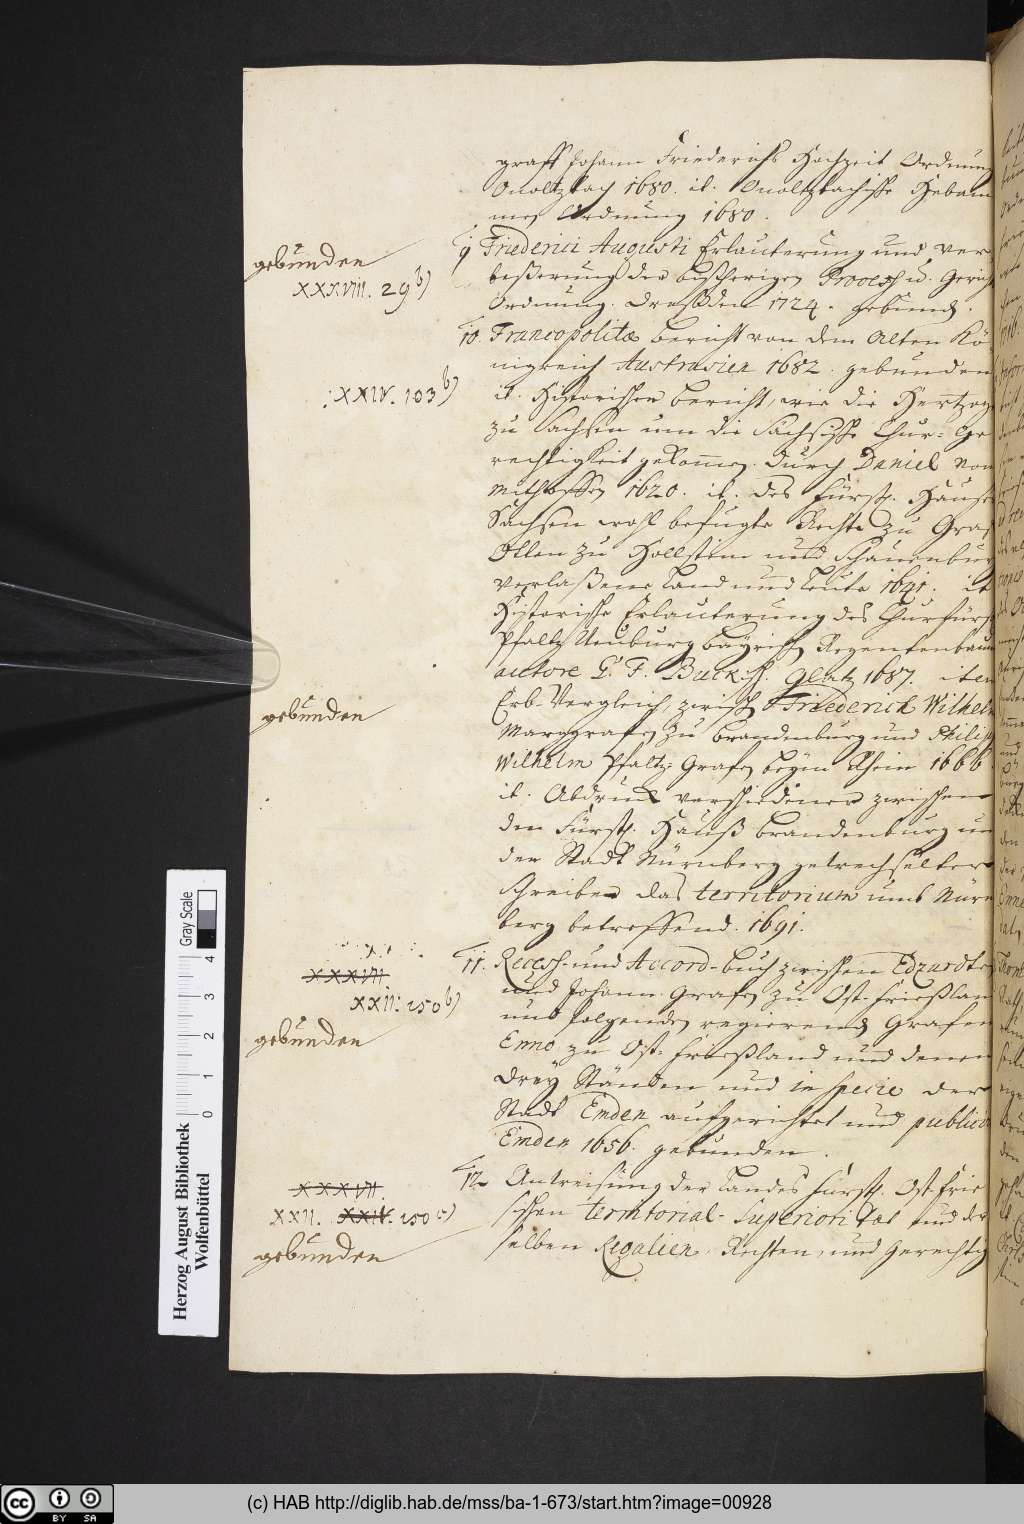 graff Johann Friederichs Hochzeit Ordnung
Onoltzbach 1680. it. Onoltzbachische Hebam
men Ordnung 1680.
gebunden
XXXVIII. 29 b)
9 Friderici Augusti Erläuterung und ver
beßerung der bißherigen Process u. Gerichts
Ordnung. Dreßden 1724. gebund.
10. Francopolitae bericht von dem Alten Kö
nigreich Austrasien 1682. gebunden
XXIV. 103 b)
it. Historischer bericht, wie die Hertzoge
zu Sachsen um die Sächsische Chur-Ge
rechtigkeit gekommen. durch Daniel von
1620. it. des Fürstl. Hauses
Sachsen wohl befugte Rechte zu Graf
Otten zu Hollstein und Schauenburg
verlaßene Land und Leute 1641. it
Historische Erläuterung des Churfürst
Pfaltz Neuburg bayrisch Regentenbaum
autore G. F. Glatz 1687. item
gebunden
Erb-Vergleich, zwisch Friederich Wilhelm
Marggrafen zu Brandenburg und Philip
Wilhelm Pfaltz Grafen beym Rhein 1666
it. Abdruck verschiedener zwischen
den Fürstl. Hauß Brandenburg un
der Stadt Nürnberg gewechselter
Schreiben das territorium umb Nürn
berg betreffend. 1691.
XXXVII
XXII. 250 b)
gebunden
11. Recess- und Accord-buch zwischen Edzardten
und Johann Grafen zu Ost-Frießlan
und folgenden regierend Grafen
Enno zu Ost-Frießland und denen
drey Ständen und in specie der
Stadt Emden aufgerichtet und public
Emden 1656. gebunden.
XXXVII
XXII. XXIV. 250 c)
gebunden
12 der Landes Fürstl. Ost Frie
sischen territorial-Superioritat und der
selben Regalien, Rechten, und Gerechtig
Herzog August Bibliothek
Wolfenbüttel
0 1 2 3 4
Gray Scale
(c) HAB http://diglib.hab.de/mss/ba-1-673/start.htm?image=00928
cc BY SA